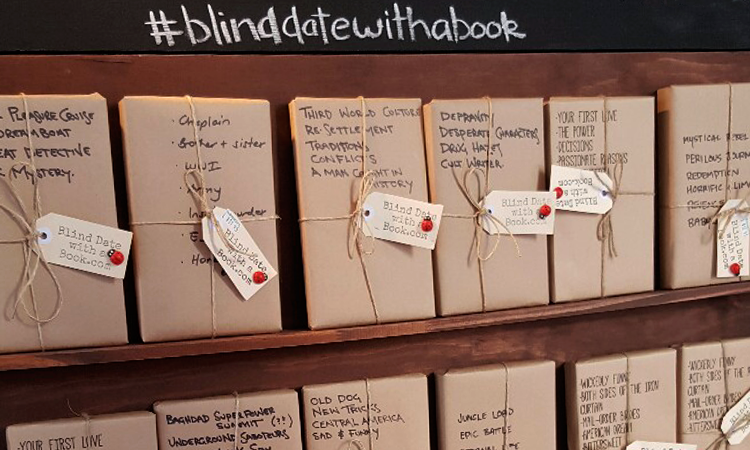 #blinddatewithabook
PLEASURE CRUISE
DREAMBOAT
GREAT DETECTIVE
MYSTERY.
Blind Date
with a
Book.com
· Chaplain
· Brother + sister
· WWI
Blind Date
with a
Book.com
THIRD WORLD CULTURE
RE-SETTLEMENT
TRADITIONS
CONFLICTS
A MAN CAUGHT IN
HISTORY
Blind Date
with a
Book.com
DEPRAVITY
DESPERATE CHARACTERS
DRUG HAZES
CULT WRITER
Blind Date
with a
Book.com
·YOUR FIRST LOVE
·THE POWER
·DECISIONS
·PASSIONATE
Blind Date
with a
Book.com
MYSTICAL
PERILOUS
REDEMPTION
Blind Date
with a
Book.com
·YOUR FIRST LOVE
BAGHDAD SUPERPOWER
SUMMIT (??)
UNDERGROUND SABOTEURS
OLD DOG
NEW TRICKS
CENTRAL AMERICA
SAD & FUNNY
JUNGLE LORD
EPIC BATTLE
·WICKEDLY FUNNY
·BOTH SIDES OF THE IRON
CURTAIN
·MAIL-ORDER BRIDES
·AMERICAN DREAM
·BITTERSWEET
·WICKEDLY FUNNY
·BOTH SIDES OF THE
CURTAIN
·MAIL-ORDER
·AMERICAN
·BITTERSWEET